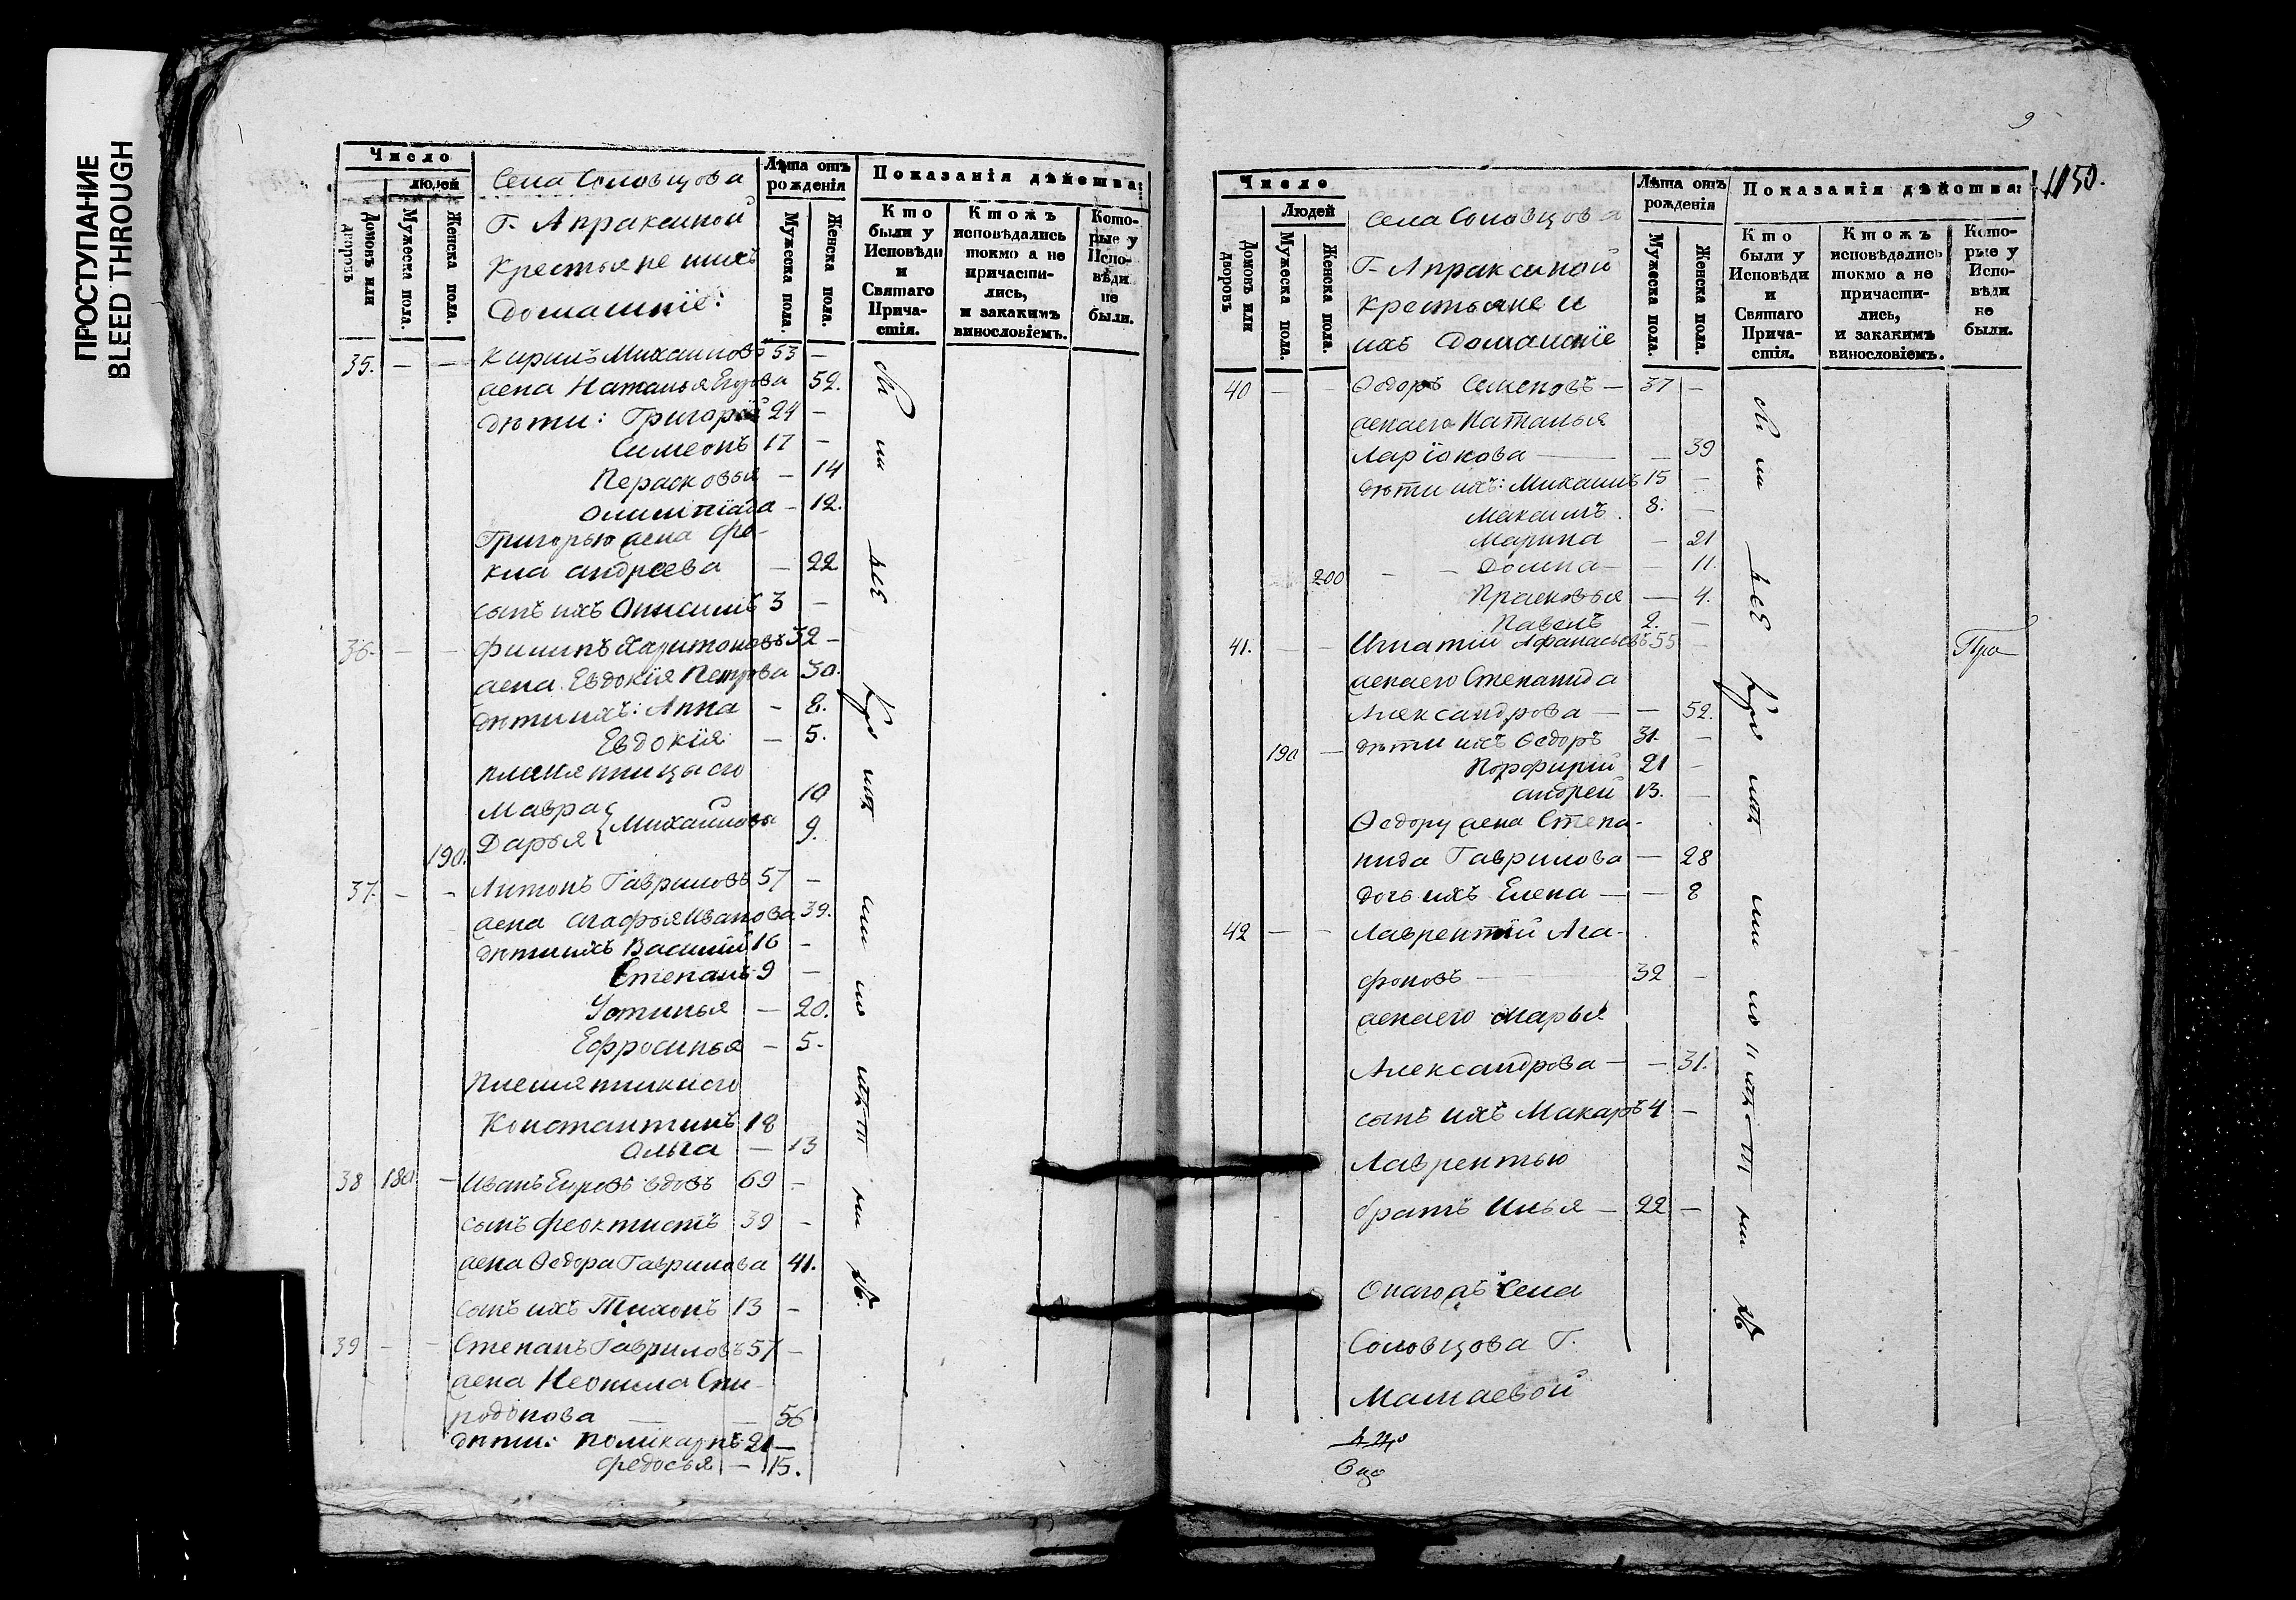 ПРОСТУПАНИЕ
BLEED THROUGH
Число
людей
Домовъ или дворовъ
Мужеска пола.
Женска пола.
Села Соловцова
Г. Апраксиной
Крестьяне и ихъ
Домашніе:
Лѣта отъ рожденія
Мужеска пола.
Женска пола.
Показанія дѣйства:
Кто были у Исповѣди и Святаго Прича-стія.
Ктожъ исповѣдались токмо а не причасти-лись, и закакимъ винословіемъ.
Кото-рые у Испо-вѣди не были.
35. — — Кирилъ Михаиловъ 53 —
жена Наталья Егорова 52.
дѣти: Григорій 24 —
Симеонъ 17 —
Перасковья — 14
Олимпіада — 12.
Григорью жена Фе-
кла Андреева — 22
сынъ ихъ Онисимъ 3 —
36. — — Филипъ Харитоновъ 32 —
жена Евдокія Петрова 30.
дѣти ихъ: Анна — 8.
Евдокія — 5.
племянницы его
Мавра 10
Дарья Михаиловы 9.
190.
37. — — Антонъ Гавриловъ 57 —
жена Агафья Иванова 39.
дѣти ихъ Василій 16 —
Степанъ 9 —
Устинья — 20.
Ефросинья — 5.
Племянники его
Константинъ 18
Ольга — 13
38 180 — Иванъ Егоровъ вдовъ 69 —
сынъ Феоктистъ 39 —
жена Ѳедора Гаврилова 41.
сынъ ихъ Тихонъ 13 —
39 — — Степанъ Гавриловъ 57 —
жена Неонила Спи-
ридонова — 56
дѣти: Поликарпъ 21 —
Федосья — 15.
9
1150.
Число
Людей
Домовъ или дворовъ
Мужеска пола.
Женска пола.
Села Соловцова
Г. Апраксиной
крестьяне и
ихъ Домашніе
Лѣта отъ рожденія
Мужеска пола.
Женска пола.
Показанія дѣйства:
Кто были у Исповѣди и Святаго Прича-стія.
Ктожъ исповѣдались токмо а не причасти-лись, и закакимъ винословіемъ.
Кото-рые у Испо-вѣди не были.
40 — — Ѳедоръ Семеновъ — 37 —
жена его Наталья
Ларіонова — 39
дѣти ихъ: Михаилъ 15 —
Максимъ 8. —
Марина — 21
200 — — Домна — 11.
Прасковья — 4.
Павелъ 2. —
41. — — Игнатій Афанасьевъ 55 —
жена его Степанида
Александрова — — 52.
190 — дѣти ихъ Ѳедоръ 31. —
Порфирій 21 —
Андрей 13. —
Ѳедору жена Степа-
нида Гаврилова — 28
дочь ихъ Елена — — 8
42 — — Лаврентій Ага-
фоновъ — 32 —
жена его Марья
Александрова — — 31.
сынъ ихъ Макаръ 4 —
Лаврентью
братъ Илья — 22 —
Онагожъ Села
Соловцова Г.